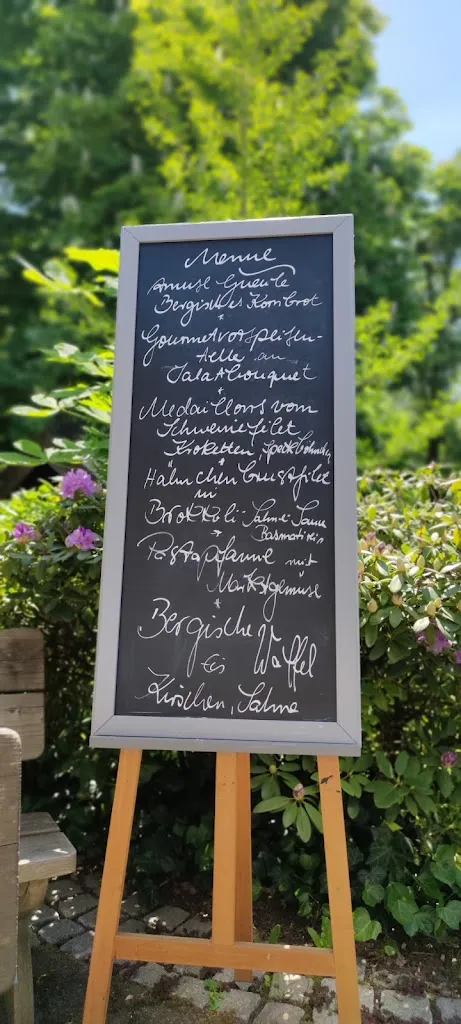 Menue
Amuse Gueule
Bergisches Kornbrot
*
Gourmetvorspeisen-
telle an
Salatbouquet
*
Medaillons vom
Schweinefilet
Kroketten, Speckböhnchen
*
Hähnchenbrustfilet
in
Brokkoli-Sahne-Sauce
Basmatireis
*
Pastapfanne mit
Marktgemüse
*
Bergische Waffel
Eis
Kirschen, Sahne